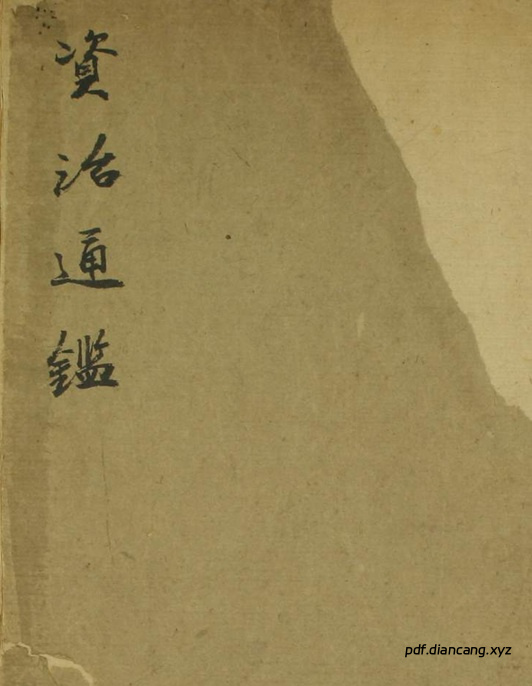 資治通鑑
pdf.diancang.xyz